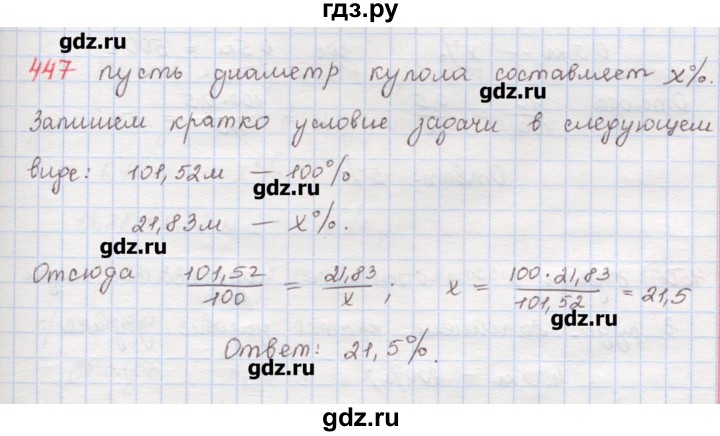 гдз.ру
gdz.ru
447 пусть диаметр купола составляет x%.
gdz.ru
Запишем кратко условие задачи в следующем
виде: 101,52м — 100%
gdz.ru
21,83м — x%.
gdz.ru
Отсюда 101,52/100 = 21,83/x ; x = 100·21,83/101,52 = 21,5
gdz.ru
Ответ: 21,5%.
gdz.ru
gdz.ru